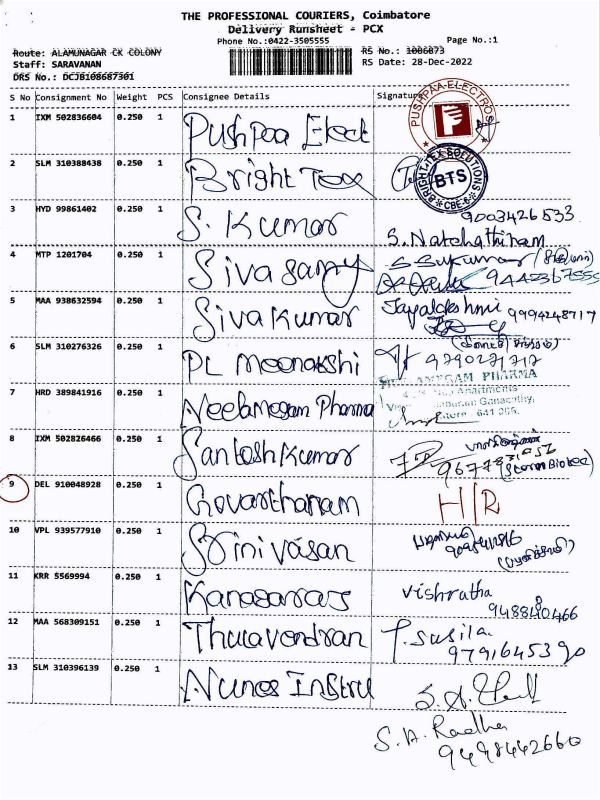 THE PROFESSIONAL COURIERS, Coimbatore
Delivery Runsheet - PCX
Phone No.:0422-3505555
Page No.:1
Route: ALAMUNAGAR CK COLONY
RS No.: 1086873
Staff: SARAVANAN
RS Date: 28-Dec-2022
DRS No.: DCJB108687301
S No Consignment No Weight PCS Consignee Details Signature
1 IXM 502836604 0.250 1 Pushpaa Elect
PUSHPAA ELECTROS
2 SLM 310388438 0.250 1 Bright Tex
BRIGHT TEX SOLUTIONS
BTS
CBE-6
3 HYD 99861402 0.250 1 S. Kumar
9003426533
S. Natchathiram
4 MTP 1201704 0.250 1 Sivasamy
S Sukumar
5 MAA 938632594 0.250 1 Sivakumar
9994248717
6 SLM 310276326 0.250 1 PL Meenakshi
7 HRD 389841916 0.250 1 Neelamegam Pharma
PHARMA
Apartments
Ganapathy,
8 IXM 502826466 0.250 1 Santosh Kumar
9 DEL 910048928 0.250 1 Govarthanam H/R
10 VPL 939577910 0.250 1 Srinivasan
11 KRR 5569994 0.250 1 Kanagaraj Vishrutha
12 MAA 568309151 0.250 1 Thuravendran T. Susila
9791645390
13 SLM 310396139 0.250 1 Nunes Instru
S. A. Radha
9498442660